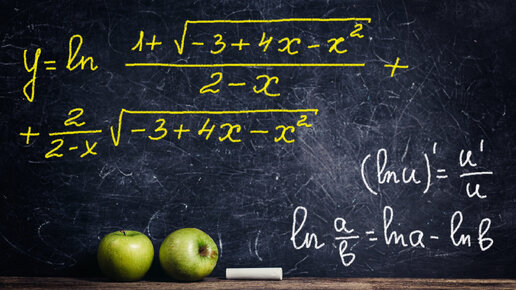 y = ln (1 + √(-3 + 4x - x²)) / (2 - x) +
+ 2 / (2 - x) √(-3 + 4x - x²)
(ln u)' = u' / u
ln a/b = ln a - ln b